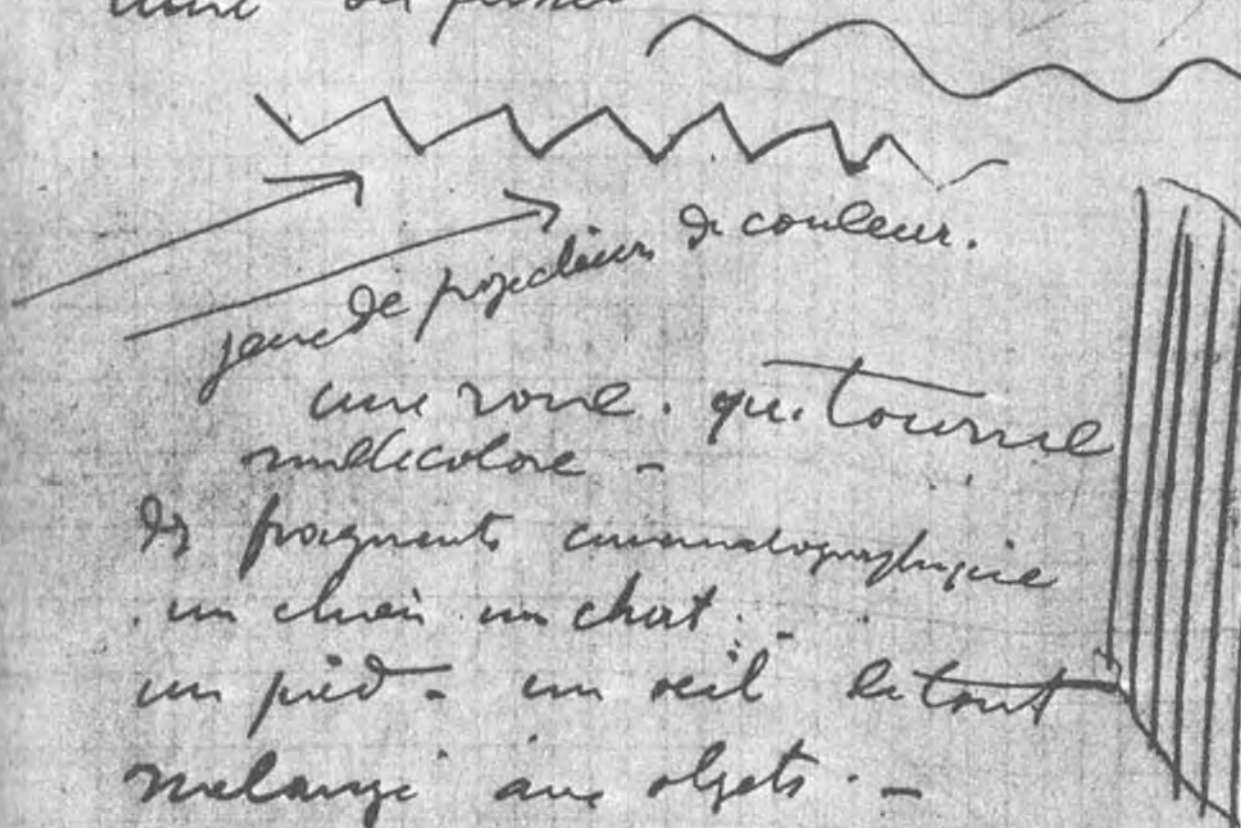 jeux de projecteurs de couleur.
une roue. qui tourne
multicolore -
des fragments cinematographique
. un chien un chat. -
un pied - un œil le tout
melangé aux objets. -